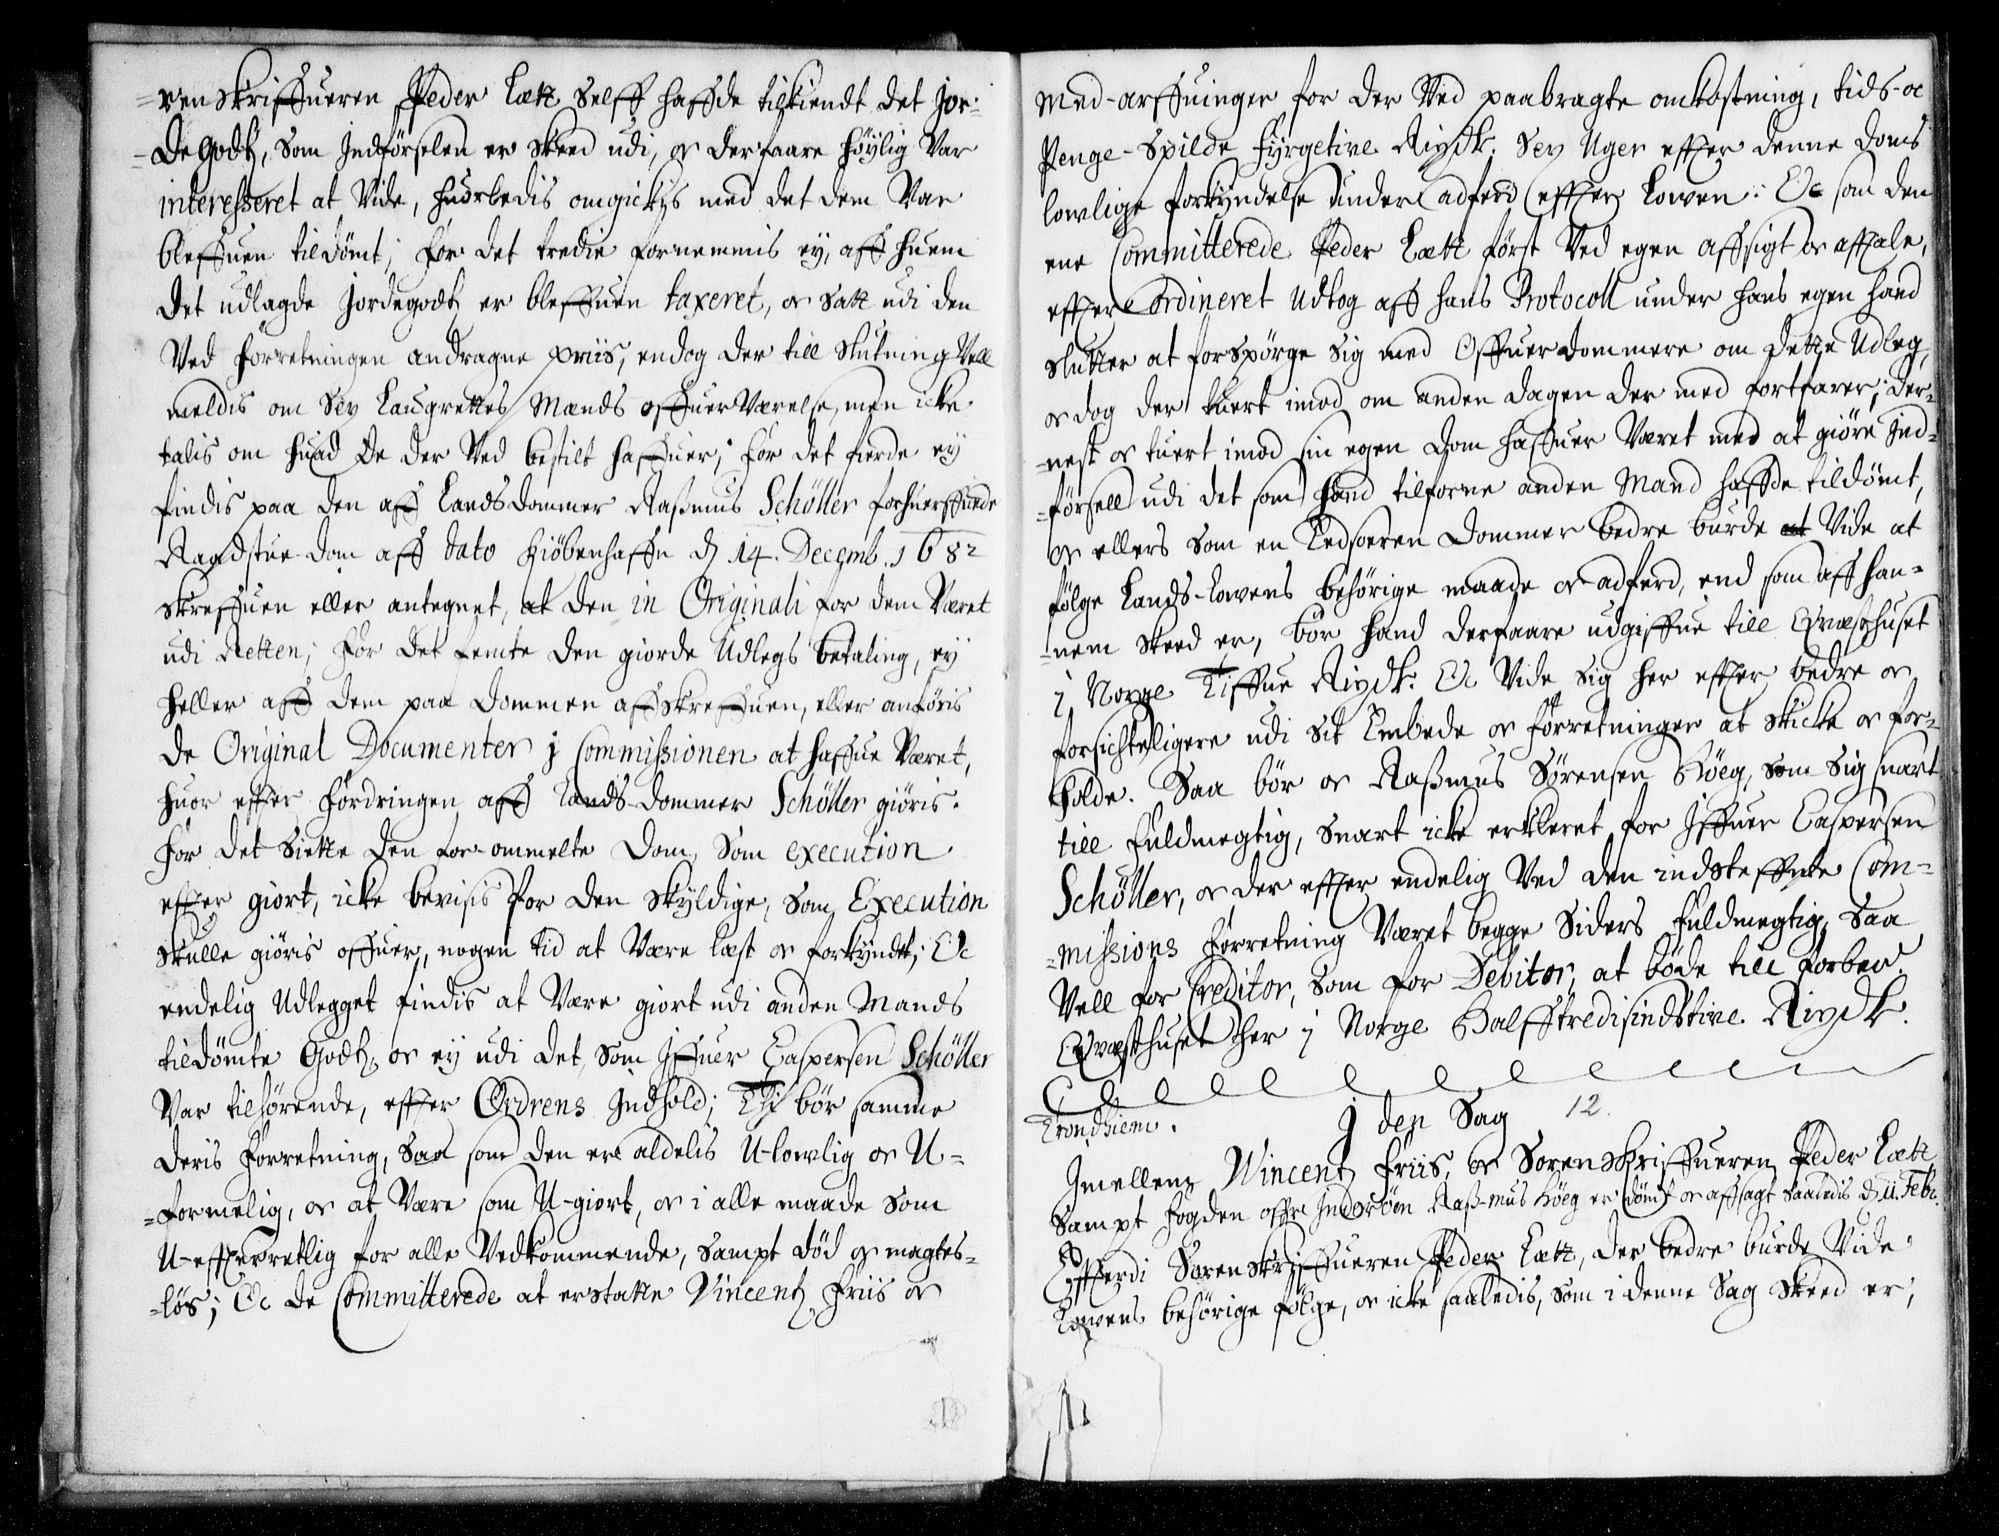 =renskriffueren Peder Lætt Selff haffde tilkiendt det Jor-
-degodtz, Som Indførselen er skeed udi, oc derfaare høylig Var
interesseret at Vide, huorledis omgickis med det dem Var
bleffuen tildømt; for det tredie fornemmis ey, aff huem
det udlagde Jordegodtz er bleffuen taxeret, oc Satt udi den
Ved forretningen andragne priis, endog der till Slutning Vell
meldis om Sex Laugrettes Mænds offuerværelse, men icke
talis om huad De der Ved bestilt haffuer; for det fierde ey
findis paa den aff Landsdommer Rasmus Schöller forhuerffuede
Raadstue-dom aff dato Kiøbenhaffn d 14. Decemb. 1682
skreffuen eller antegnet, at den in Originali for dem Været
udi Retten; for det femte den giorde Udlegs betaling, ey
heller aff dem paa dommen affskreffuen, eller anføris
de Original Documenter j Commissionen at haffue Været,
huor effter fordringen aff Lands-dommer Schöller giøris.
for det Siette den for-ommelte dom, Som execution
effter giort, icke bevisis for den skyldige, Som Execution
skulle giøris offuer, nogen tid at Være læst oc forkyndt; Oc
endelig Udlegget findis at Være giort udi anden Mands
tildømte Godtz, oc ey udi det, Som Iffuer Caspersen Schöller
Var tilhørende, effter Ordrens Indhold; Thi bør samme
deris forretning, Saa som den er aldelis U-lowlig oc U-
=formelig, oc at Være som U-giort, oc i alle maade Som
U-effterretlig for alle Vedkommende, Sampt død oc magtes-
-løs; Oc de Committerede at erstatte Vincentz Friis oc
Med-arffuinger for der Ved paabragte omkostning, tids- oc
Penge-Spilde fyrgetive Rixdr. Sex Uger effter denne doms
lowlige forkyndelse under adferd effter Lowen: Oc som den
ene Committerede Peder Lætt først Ved egen affsigt oc afftale,
effter Ordineret Udtog aff hans Protocoll under hans egen haand
slutter at forspørge Sig med Offuerdommere om dette Udleg,
oc dog der tuert imod om anden dagen der med fortfarer; der-
-nest oc tuert imod sin egen dom haffuer Været med at giøre Ind-
=førsell udi det som hand tilforne anden Mand haffde tildømt,
oc ellers som en Edsoren dommer bedre burde at Vide at
følge Lands-Lowens behørige maade oc adferd, end som aff han-
-nem skeed er, bør hand derfaare udgiffue till Qvæsthuset
j Norge Tiffue Rixdr. Oc Vide Sig her effter bedre oc
forsichteligere udi Sit Embede oc forretninger at skicke oc for-
holde. Saa bør oc Rasmus Sørensen Høeg, som Sig snart
till Fuldmegtig, Snart icke erkleret for Iffuer Caspersen
Schöller, oc der effter endelig Ved den indsteffnte Com-
=missions forretning Været begge Siders fuldmegtig, Saa
Vell for Creditor, Som for Debitor, at bøde till forber.
Qvæsthuset her j Norge Halfftredisindstive Rixdr.
12.
Trondhiem. J den Sag
Imellem Wincentz Friis, oc Sorenskriffueren Peder Lætt
Sampt fogden offr Inderøen Rasmus Høeg er dømt oc affsagt Saaledis d 11. Febr.
Effterdi Sorenskriffueren Peder Lætt, der bedre burde Vide
Lowens behørige følge, oc icke saaledis, som i denne Sag skeed er,